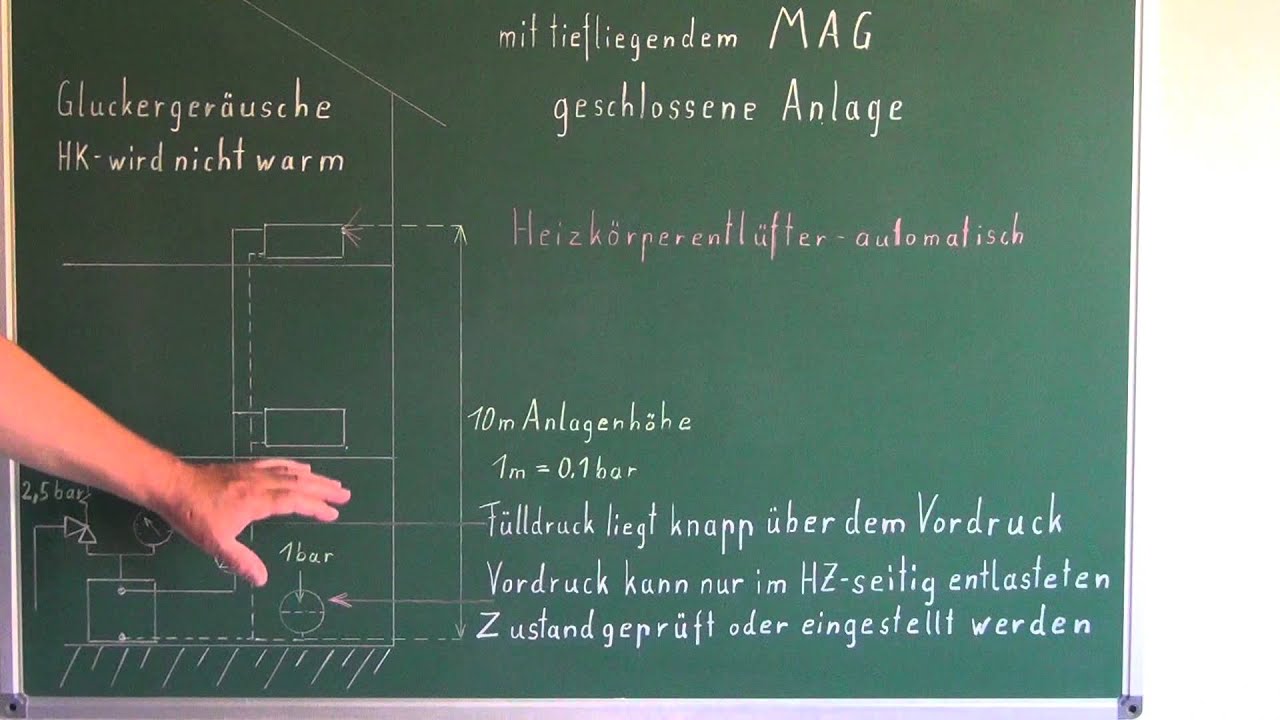 mit tiefliegendem MAG
geschlossene Anlage
Gluckergeräusche
HK-wird nicht warm
Heizkörperentlüfter-automatisch
10m Anlagenhöhe
1m = 0,1 bar
2,5 bar
Fülldruck liegt knapp über dem Vordruck
1bar
Vordruck kann nur im HZ-seitig entlasteten
Zustand geprüft oder eingestellt werden